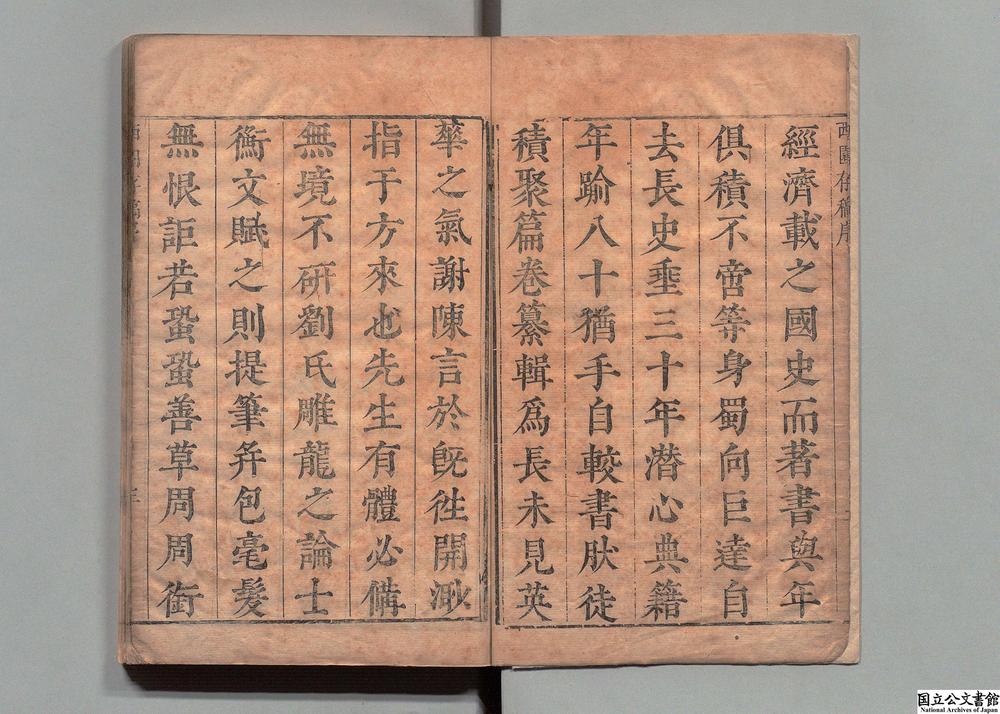 經濟載之國史而著書與年
俱積不啻等身蜀向巨達自
去長史垂三十年潛心典籍
年踰八十猶手自較書肰徒
積聚篇卷纂輯爲長未見英
華之氣謝陳言於旣徃開
指于方來也先生有體必備
無境不研劉氏雕龍之論士
衡文賦之則提筆幷包毫髮
無恨詎若蛩蛩善草周周銜
國立公文書館
National Archives of Japan